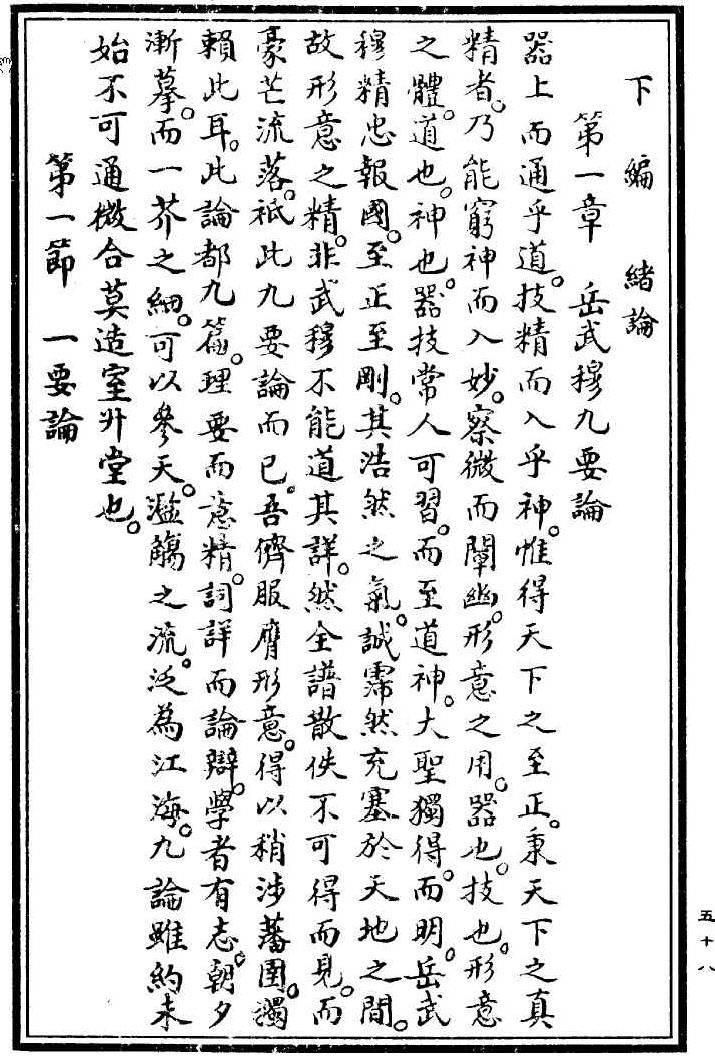 下編　緒論
第一章　岳武穆九要論
器上而通乎道。技精而入乎神。惟得天下之至正。秉天下之真
精者。乃能窮神而入妙。察微而闡幽。形意之用。器也。技也。形意
之體。道也。神也。器技常人可習。而至道神。大聖獨得。而明。岳武
穆精忠報國。至正至剛。其浩然之氣。誠霈然充塞於天地之間。
故形意之精。非武穆不能道其詳。然全譜散佚不可得而見。而
豪芒流落。祇此九要論而已。吾儕服膺形意。得以稍涉藩圉。獨
賴此耳。此論都九篇。理要而意精。詞詳而論辯。學者有志。朝夕
漸摹。而一芥之細。可以參天。濫觴之流。泛為江海。九論雖約未
始不可通微合莫造室升堂也。
第一節　一要論
五十八